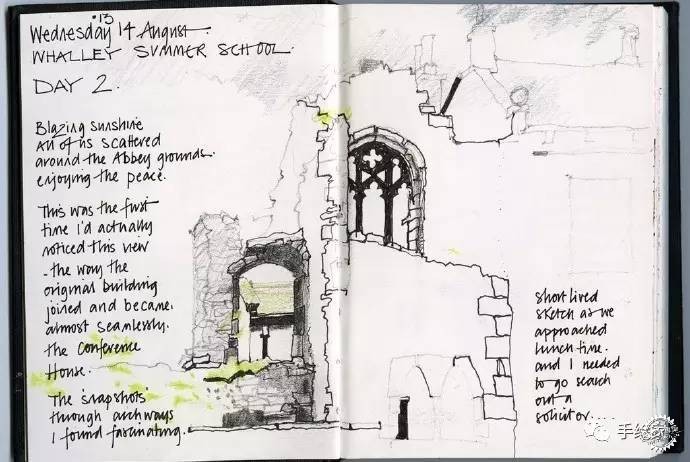 '13
Wednesday 14 August.
WHALLEY SUMMER SCHOOL.
DAY 2.
Blazing sunshine
All of us scattered
around the Abbey grounds.
enjoying the peace.
This was the first
time I'd actually
noticed this view
- the way the
original building
joined and became.
almost seamlessly.
the Conference
House.
The 'snapshots'
through archways
I found fascinating.
short lived
sketch as we
approached
lunch time.
and I needed
to go search
out a
solicitor.....
手绘